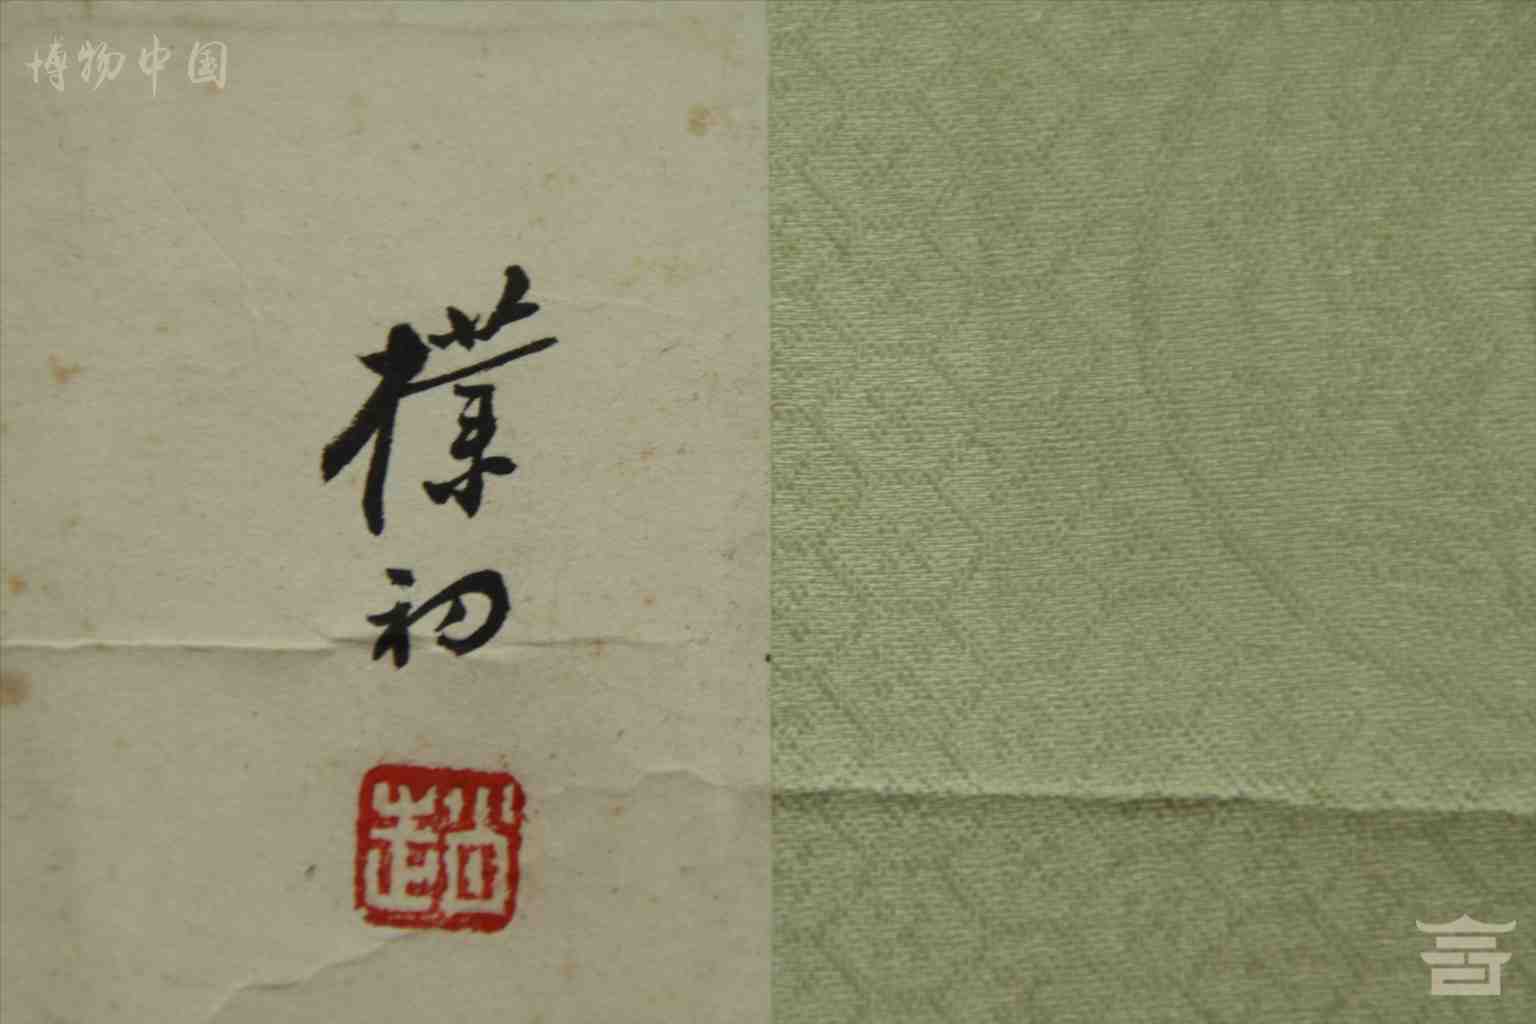 博物中国
樸初
趙